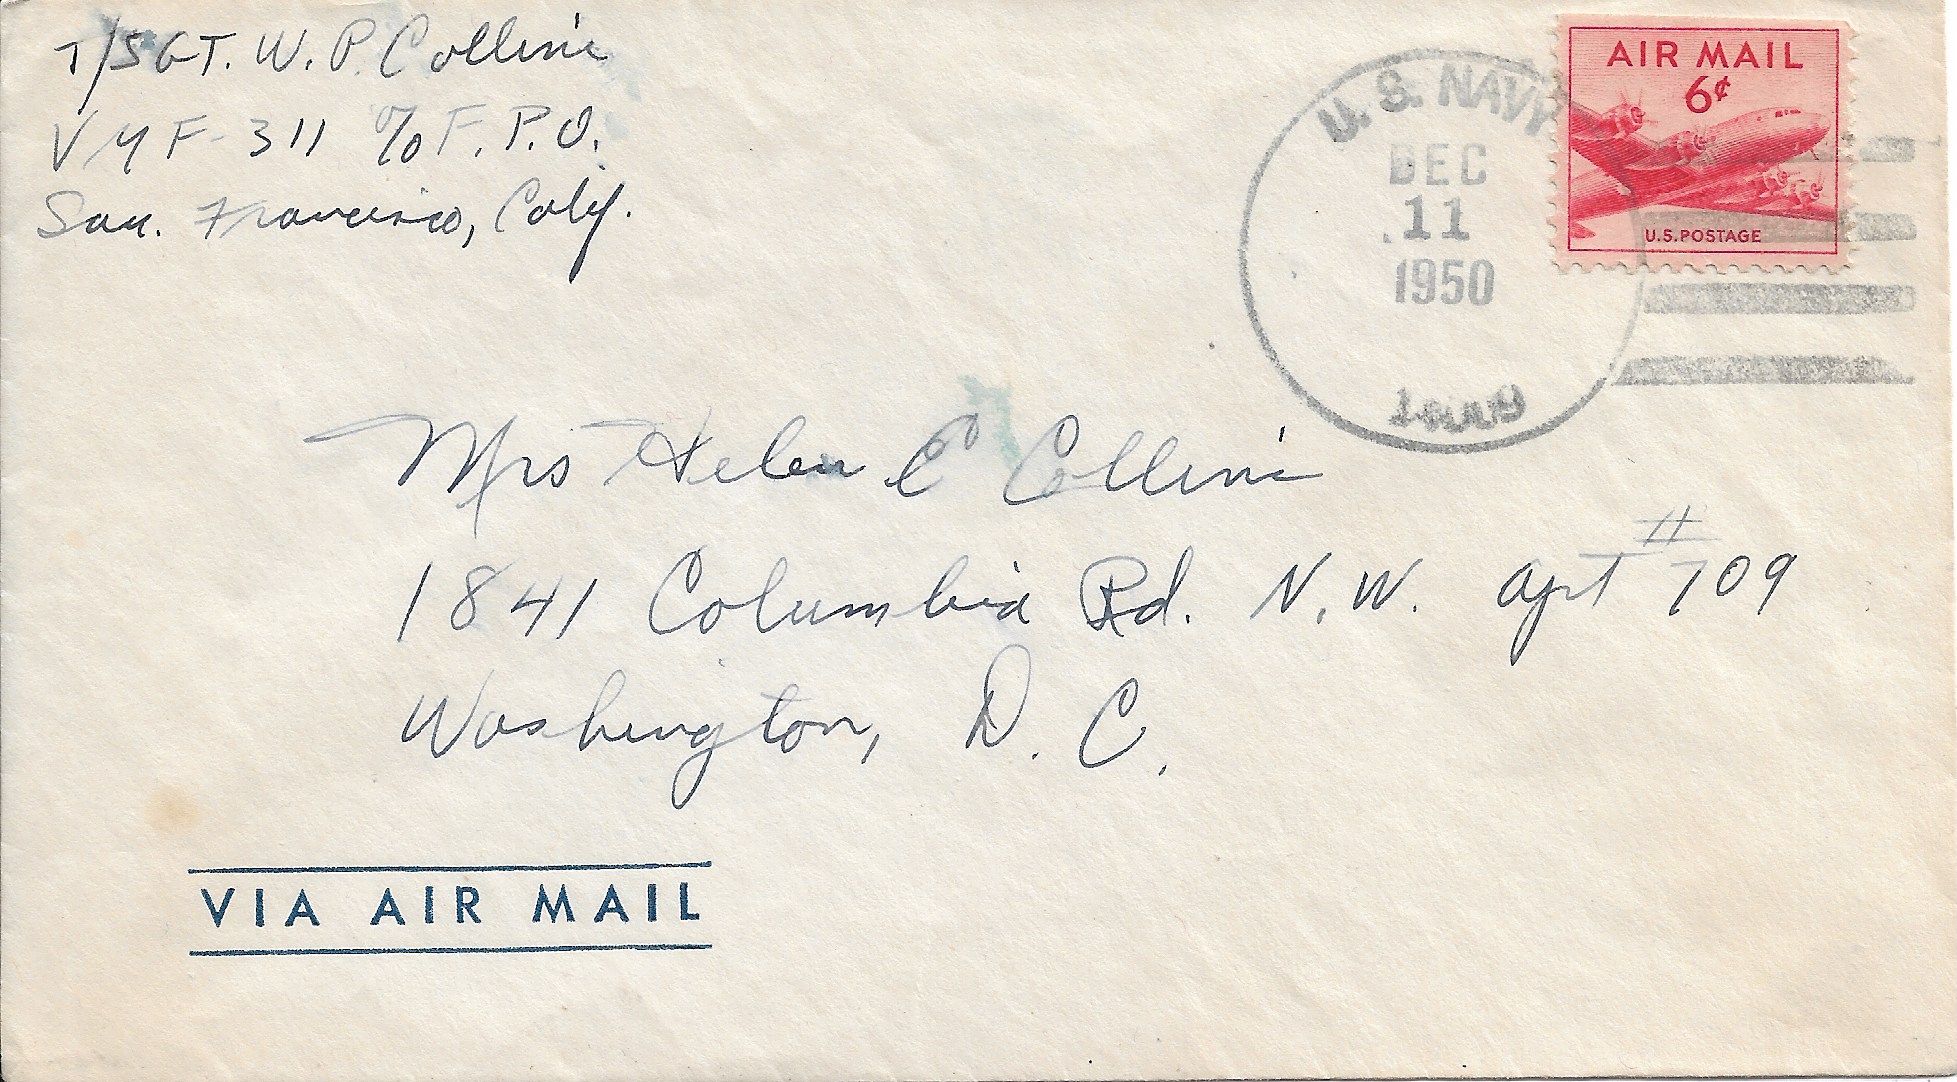 T/SGT. W. P. Collins
VMF-311 c/o F.P.O.
San. Francisco, Calif.
U.S. NAVY
DEC
11
1950
AIR MAIL
6¢
U.S. POSTAGE
Mrs Helen E Collins
1841 Columbia Rd. N.W. apt #709
Washington, D.C.
VIA AIR MAIL